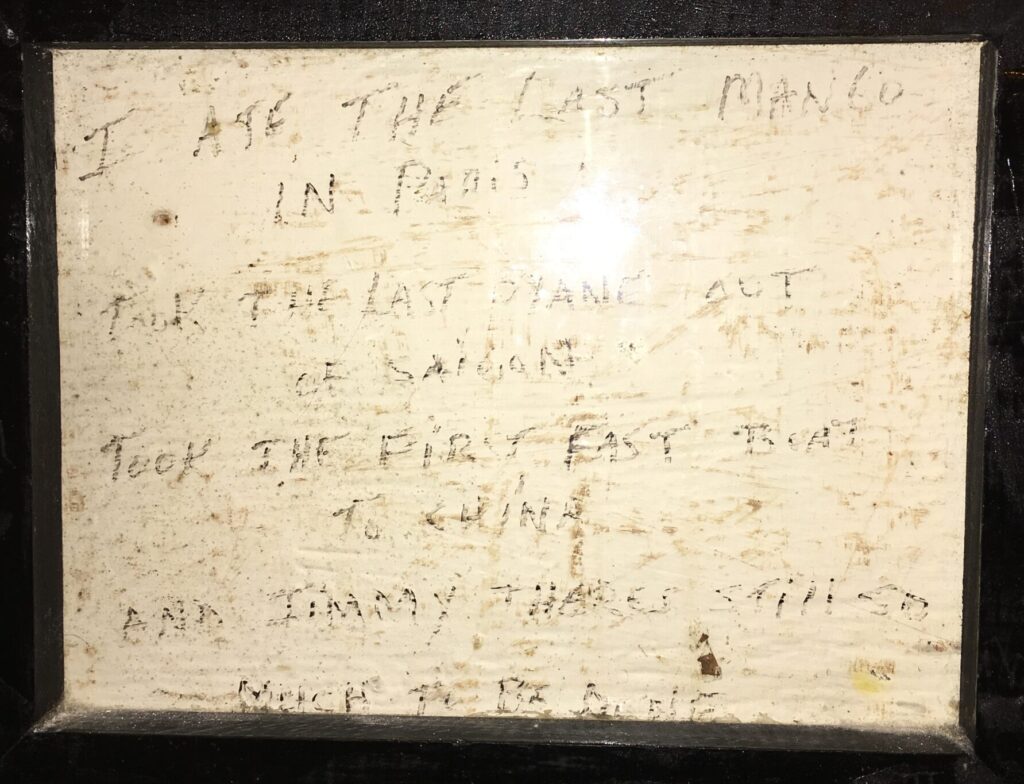 I ATE THE LAST MANGO
IN PARIS
TOOK THE LAST PLANE OUT
OF SAIGON "
TOOK THE FIRST FAST BOAT
TO CHINA
AND JIMMY THERES STILL SO
MUCH TO BE DONE